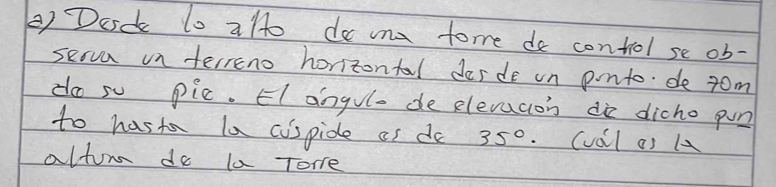 a) Desde lo alto de una torre de control se ob-
serva un terreno horizontal desde un punto. de 70m
de su pie. El ángulo de elevación de dicho pun
to hasta la cúspide es de 35°. Cuál es la
altura de la Torre